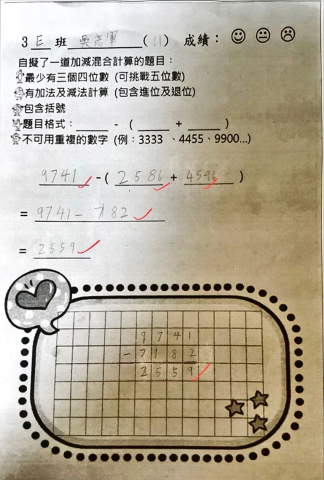 3 E 班 (11) 成績：
自擬了一道加減混合計算的題目：
最少有三個四位數 (可挑戰五位數)
有加法及減法計算 (包含進位及退位)
包含括號
題目格式：_____ - (_____ + _____)
不可用重複的數字 (例：3333 、4455、9900...)
9741 - ( 2586 + 4596 )
= 9741 - 7182
= 2559
9741
- 7182
2559